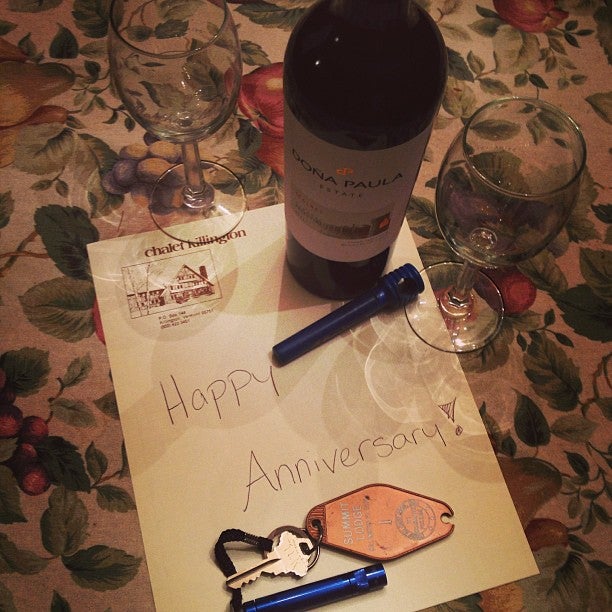 DOÑA PAULA
ESTATE
chalet killington
Killington, Vermont 05751
Happy
Anniversary!
SUMMIT
LODGE
1